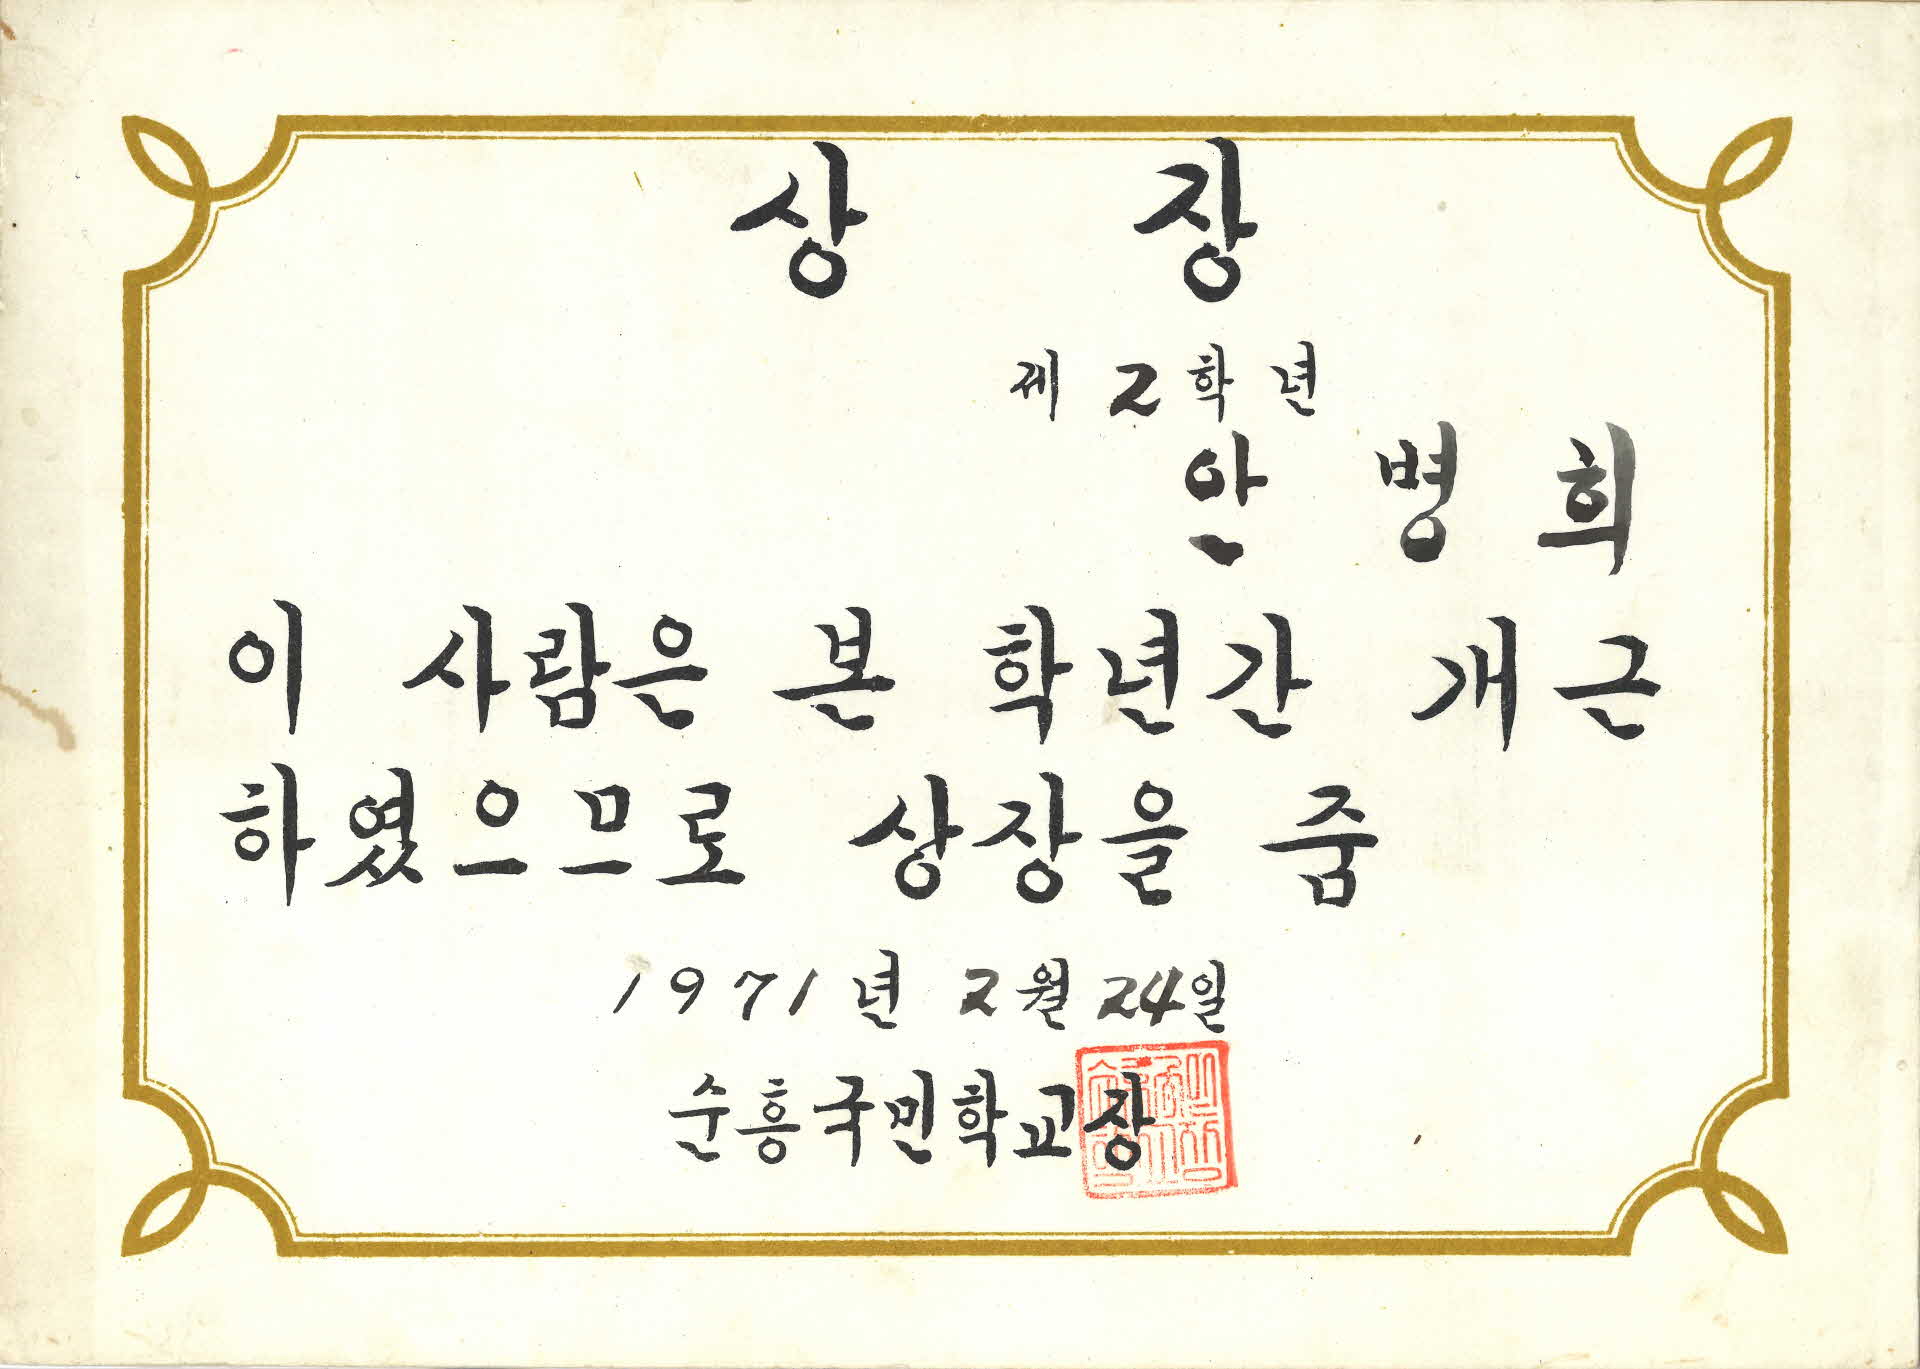 상 장
제 2 학 년
안 병 희
이 사람은 본 학년간 개근
하였으므로 상장을 줌
1971년 2월 24일
순흥국민학교장